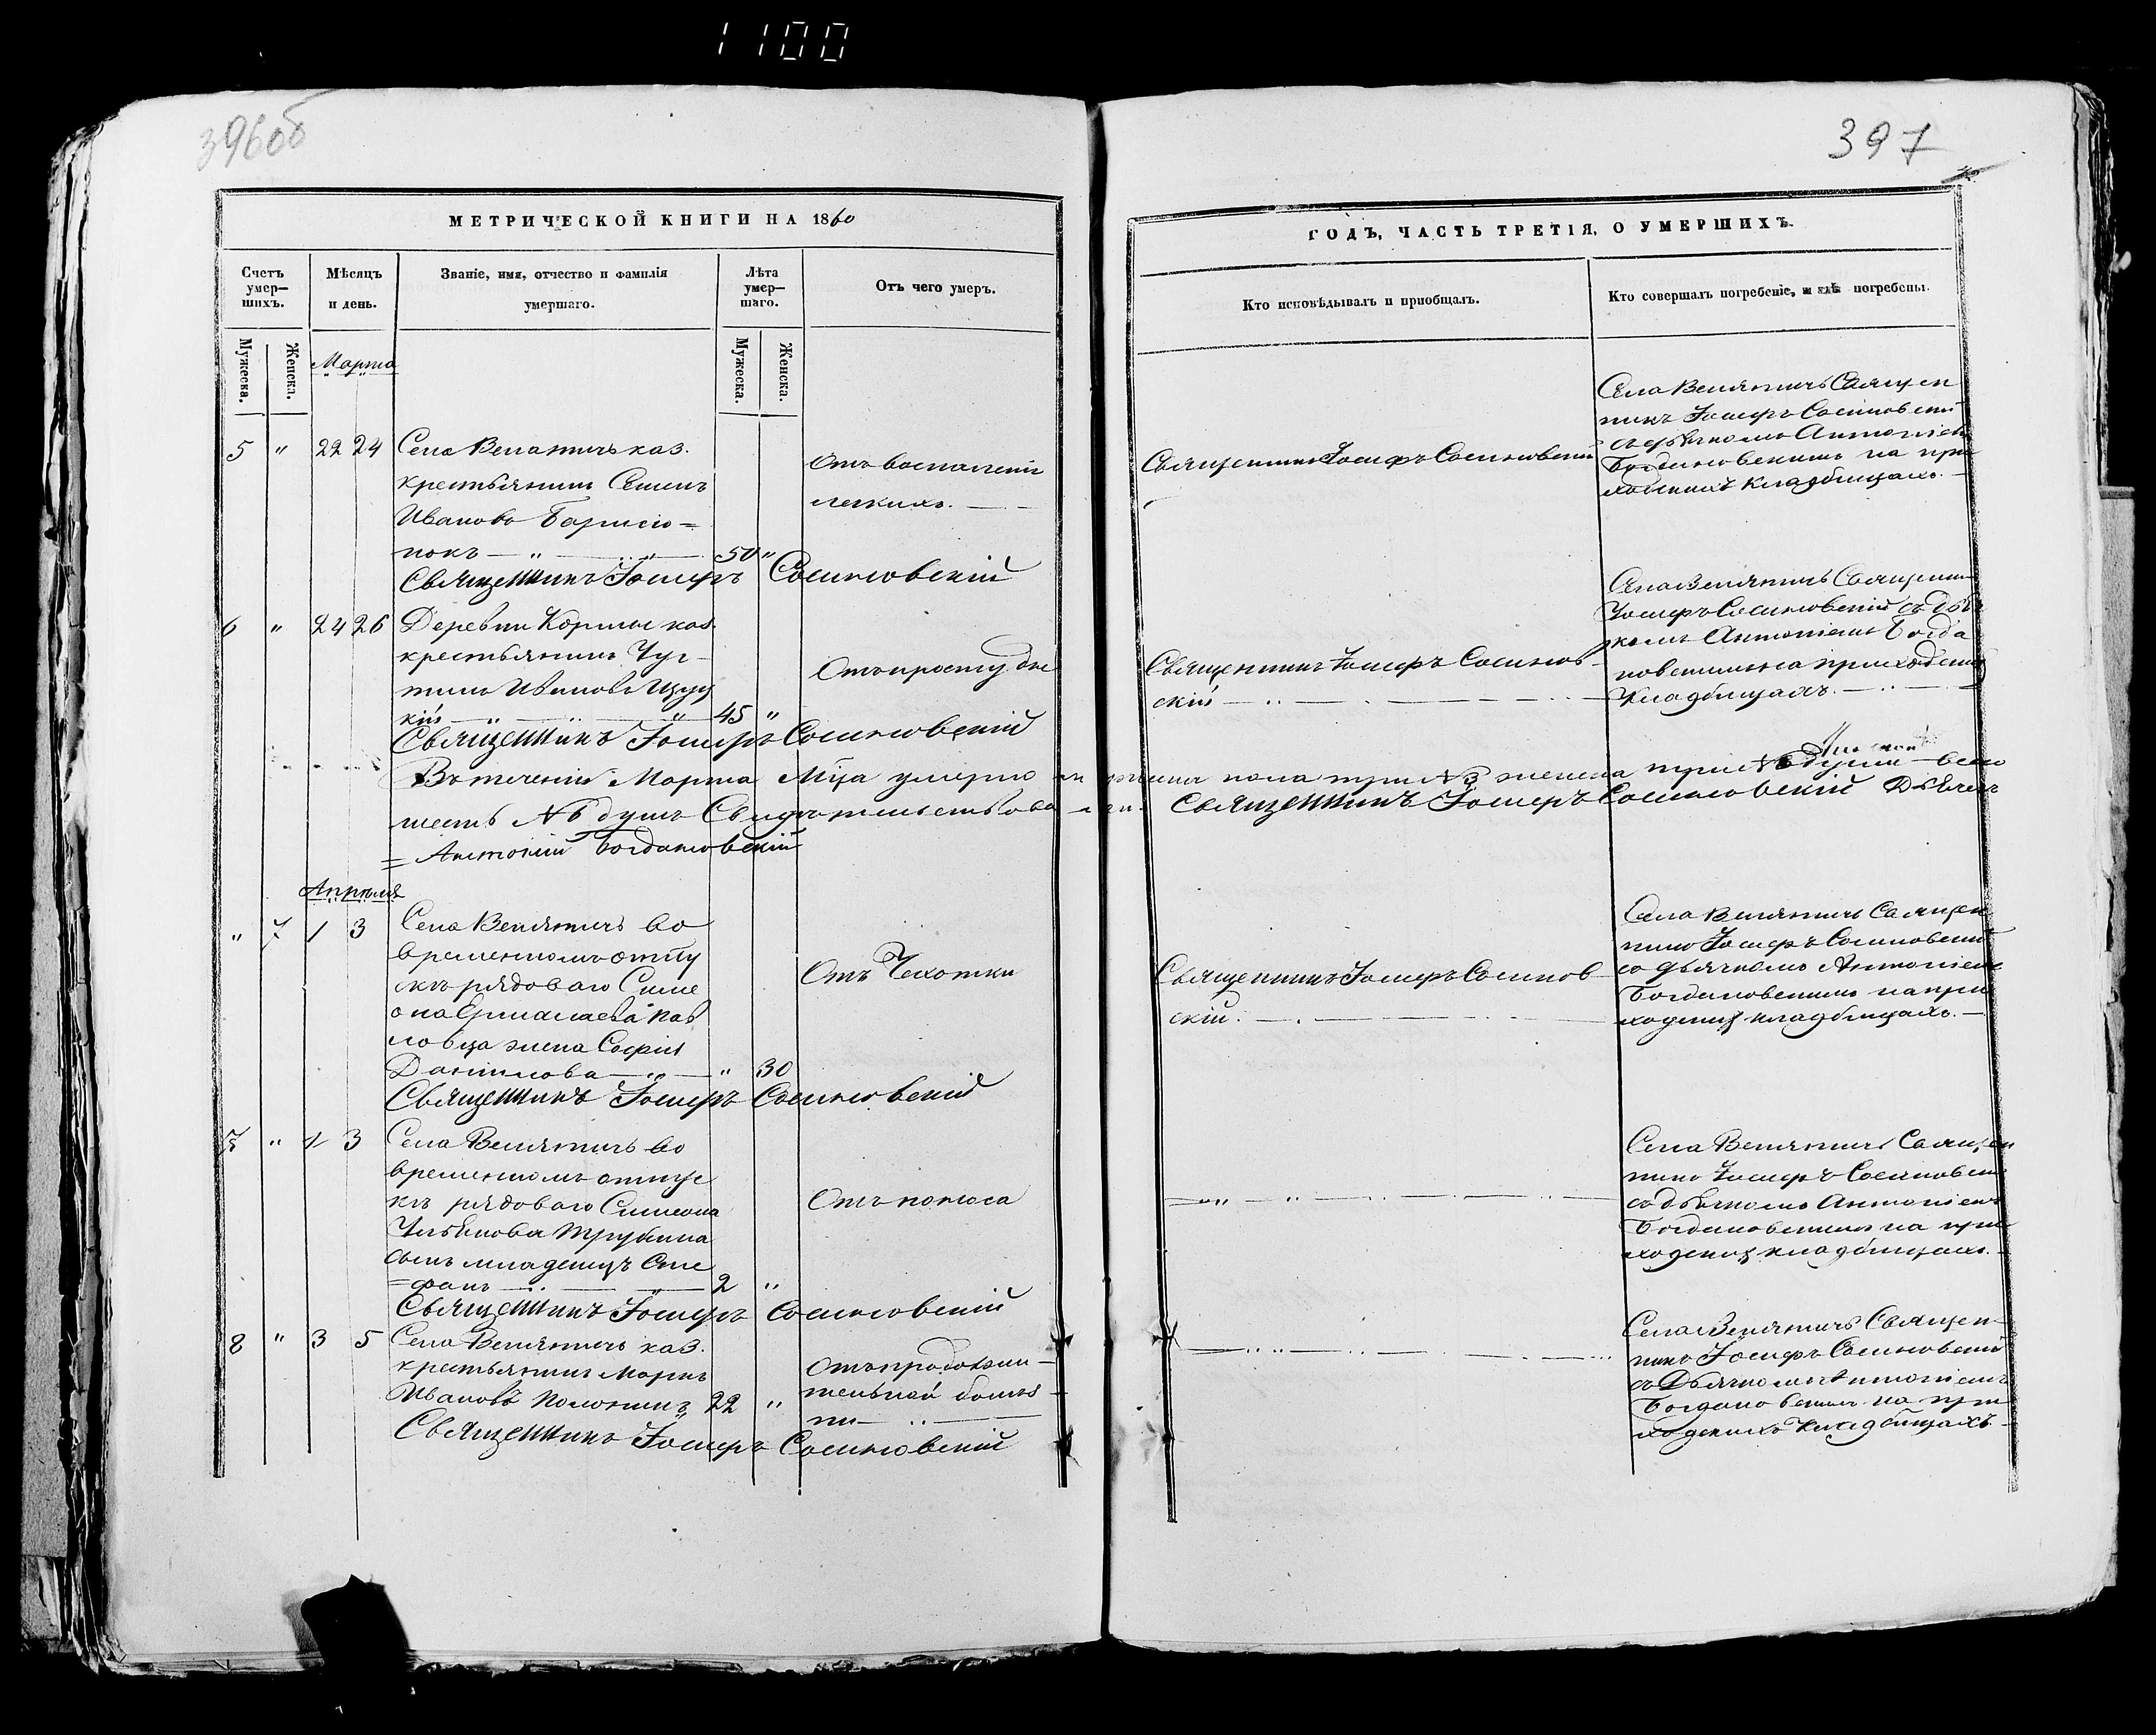 1100
396об
397
МЕТРИЧЕСКОЙ КНИГИ НА 1860
ГОДЪ, ЧАСТЬ ТРЕТІЯ, О УМЕРШИХЪ.
Счетъ умер—шихъ.
Мѣсяцъ и день.
Званіе, имя, отчество и фамилія умершаго.
Лѣта умер—шаго.
Отъ чего умеръ.
Кто исповѣдывалъ и пріобщалъ.
Кто совершалъ погребеніе, и гдѣ погребены.
Мужеска.
Женска.
Мужеска.
Женска.
Марта
5 " 22 24
Села Велятичъ каз.
крестьянинъ Семенъ
Ивановъ Борисю=
нокъ — " — " — 50 "
Отъ воспаленія
легкихъ. —
Священникъ Іосифъ Сосиновскій
Села Велятичъ Священ
никъ Іосифъ Сосиновскій
съ дьячкомъ Антоніемъ
Богдановскимъ на при
ходскихъ кладбищахъ. —
Священникъ Іосифъ Сосиновскій
6 " 24 26
Деревни каз.
крестьянинъ
Ивановъ
кій — " — " — " — 45 "
Отъ простуды
Священникъ Іосифъ Сосинов
скій —
Села Велятичъ Священни
Іосифъ Сосиновскій съ дья
комъ Антоніемъ Богда
новскимъ на приходскихъ
кладбищахъ. —
Священникъ Іосифъ Сосиновскій
Въ теченіи Марта М-ца умерло пола три №3 женска три душъ всего
шесть №6 душъ Священникъ Іосифъ Сосиновскій Дьячекъ
= Антоній Богдановскій
Апрѣля
" 7 1 3
Села Велятичъ во
временномъ отпу
скѣ рядоваго Симе
она Пав
ловца жена Софія
Данилова — " — " 30
Отъ Чахотки
Священникъ Іосифъ Сосинов
скій. —
Села Велятичъ Священ
никъ Іосифъ Сосиновскій
со дьячкомъ Антоніемъ
Богдановскимъ на при
ходских кладбищахъ. —
Священникъ Іосифъ Сосиновскій
7 " 1 3
Села Велятичъ во
временномъ отпус
кѣ рядоваго Симеона
сынъ младенецъ Сте
=фанъ — " — 2 "
Отъ поноса
Села Велятичъ Священ
никъ Іосифъ Сосиновскій
съ дьячкомъ Антоніемъ
Богдановскимъ на при
ходских кладбищахъ.
Священникъ Іосифъ Сосиновскій
8 " 3 5
Села Велятичъ каз.
крестьянинъ
Ивановъ 22 "
Отъ продолжи—
тельной болѣз
ни — " —
Села Велятичъ Священ
никъ Іосифъ Сосиновскій
съ Дьячкомъ Антоніемъ
Богдановскимъ на при
ходскихъ кладбищахъ.
Священникъ Іосифъ Сосиновскій